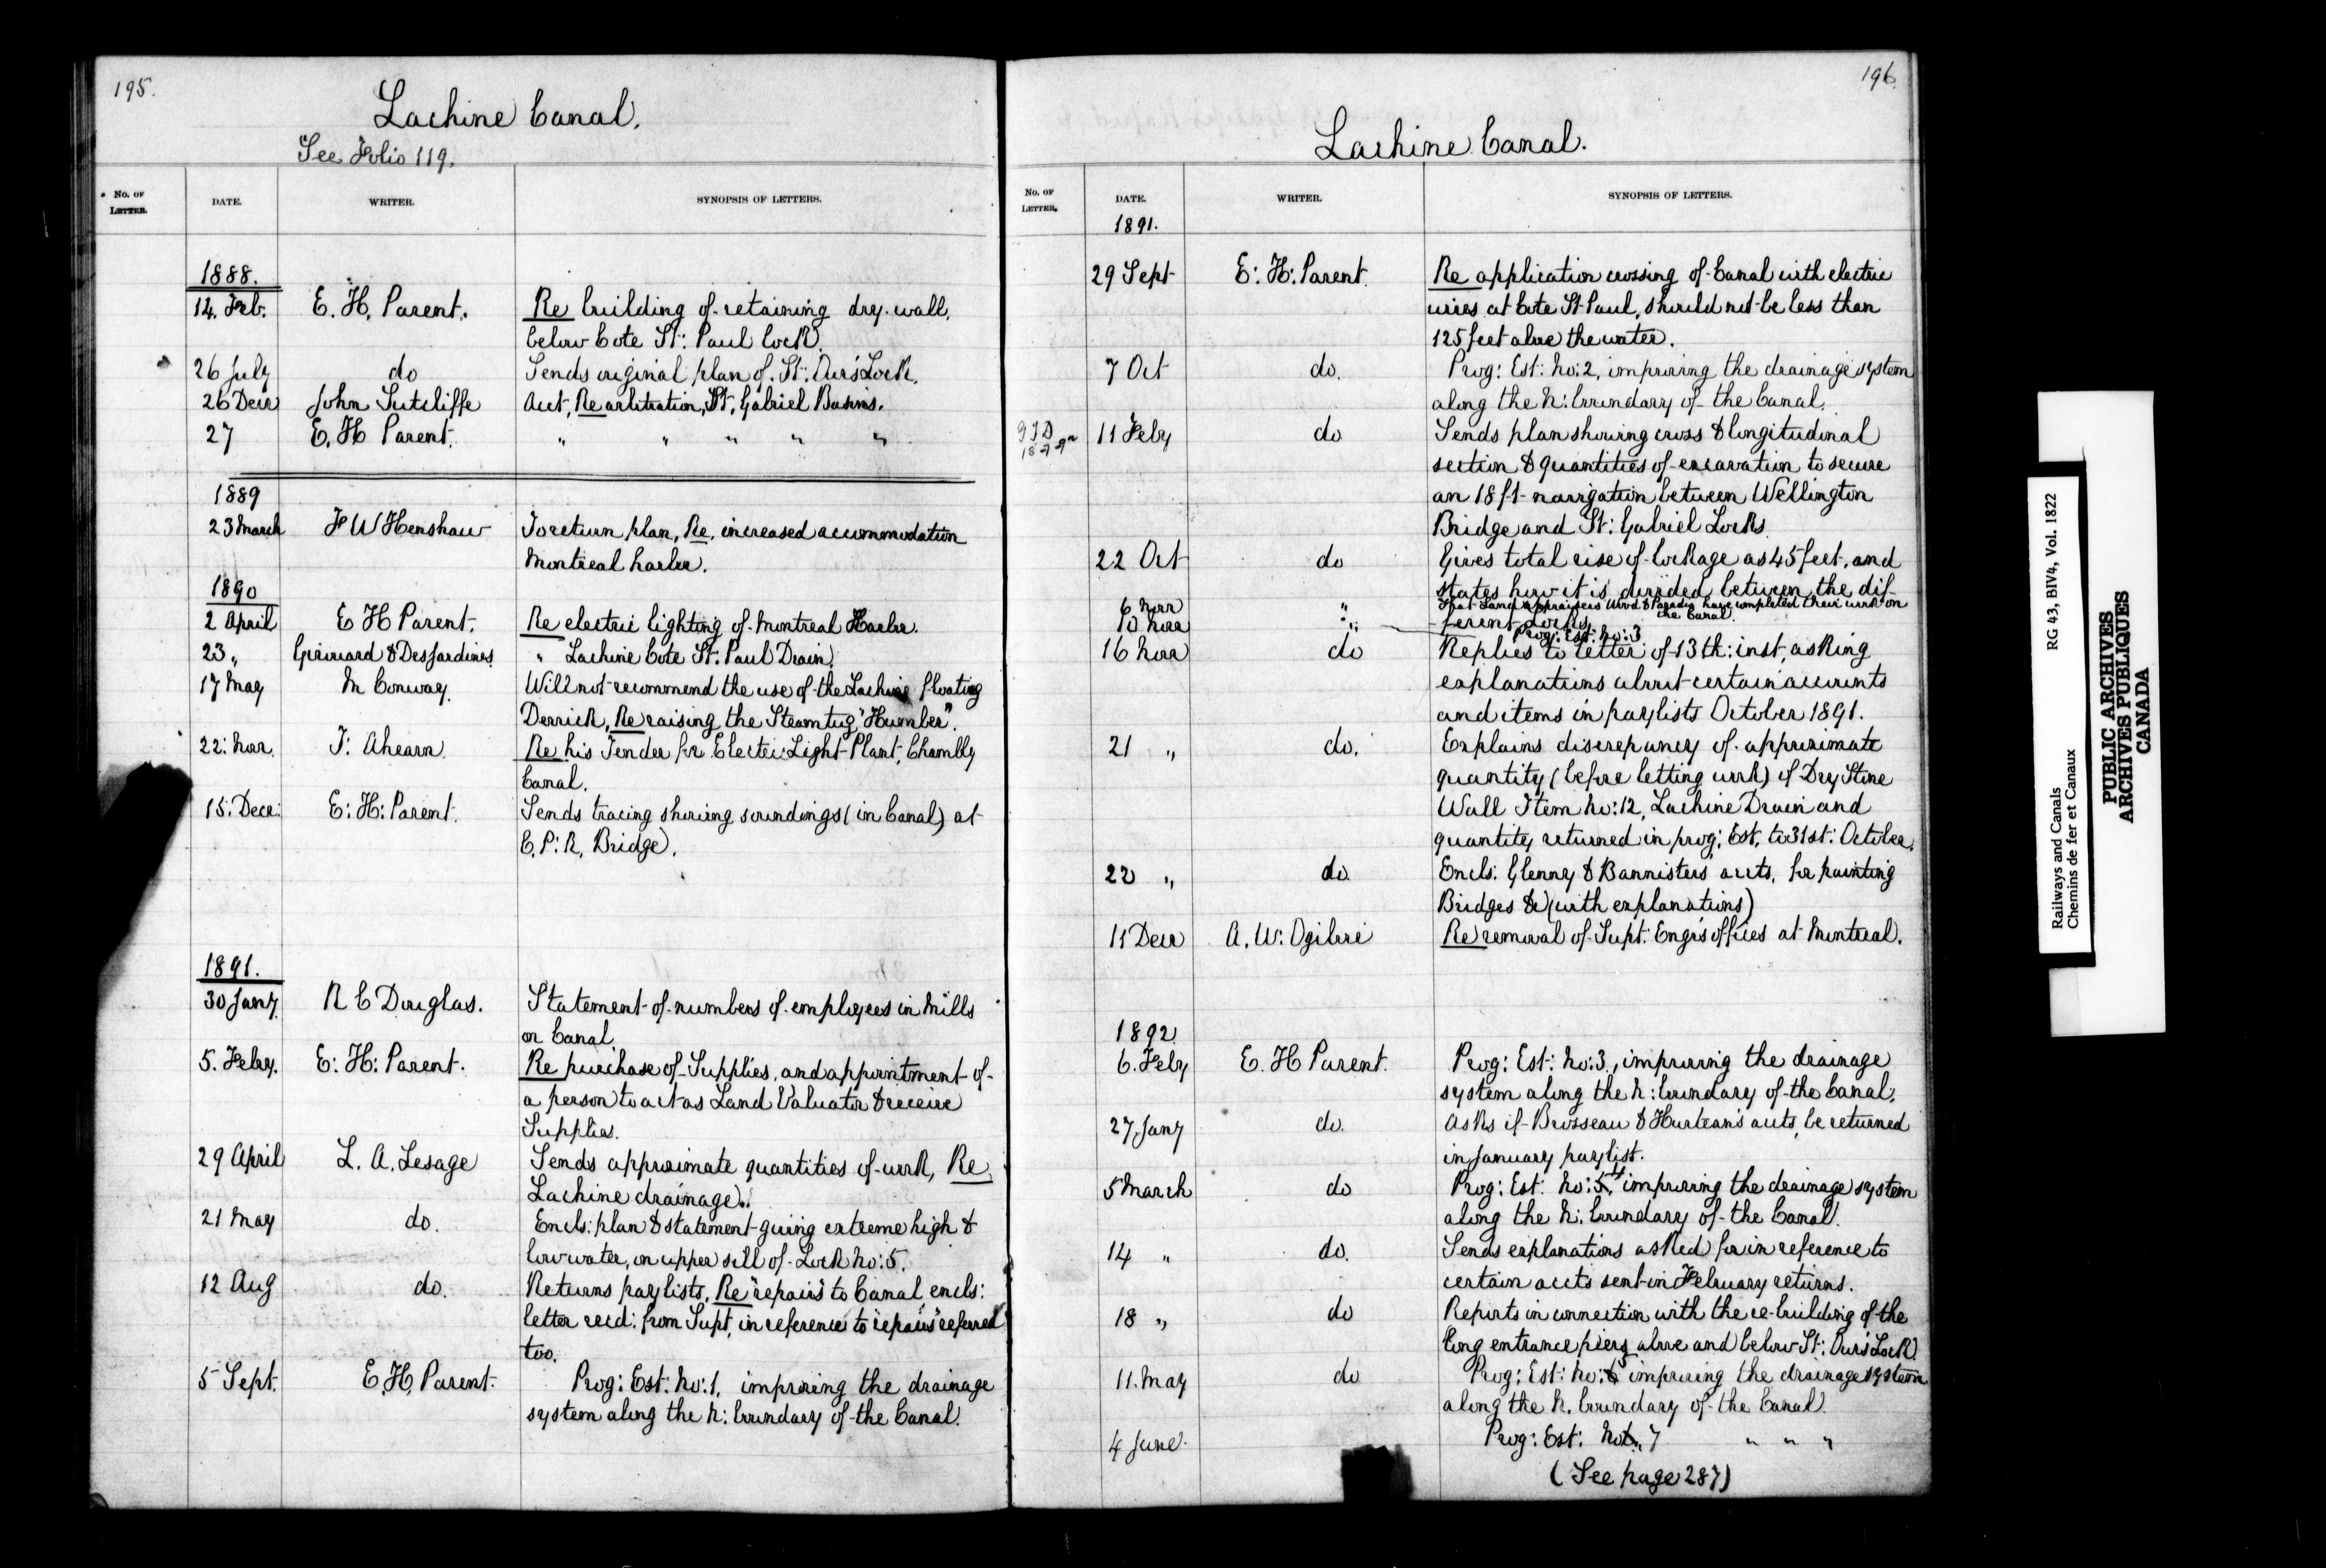 195.
Lachine Canal.
See Folio 119.
No. of Letter. DATE. WRITER. SYNOPSIS OF LETTERS.
1888.
14. Feb. E. H. Parent. Re building of retaining dry wall,
below Cote St: Paul lock.
26 July do Sends original plan of St: Our's Lock.
26 Decr John Sutcliffe Acct, Re arbitration, St, Gabriel Basins.
27 E. H Parent. " " " " "
1889
23 March F W Henshaw To return plan, Re, increased accommodation
Montreal harbor.
1890
2 April E H Parent. Re electric lighting of Montreal Harbor.
23 " Girouard & DesJardines " Lachine Cote St: Paul Drain.
17 May M Conway. Will not recommend the use of the Lachine floating
Derrick, Re raising the Steamtug "Humber".
22: Nov. T: Ahearn. Re his Tender for Electric Light Plant, Chambly
Canal.
15: Decr: E: H: Parent. Sends tracing showing soundings (in Canal) at
C. P: R, Bridge).
1891.
30 Jany R C Douglas. Statement of numbers of employees in Mills
on Canal.
5. Feby. E: H: Parent. Re purchase of Supplies, and appointment of
a person to act as Land Valuator & receive
Supplies.
29 April L. A. Lesage Sends approximate quantities of work, Re,
Lachine drainage.
21 May do. Encls: plan & statement giving extreme high &
low water, on upper sill of Lock No: 5.
12 Aug do. Returns paylists, Re "repairs" to Canal encls:
letter recd: from Supt, in reference to "repairs" referred
too.
5 Sept. E. H. Parent. Prog: Est: No: 1, improving the drainage
system along the N: boundary of the Canal.
196.
Lachine Canal.
No. of Letter. DATE. WRITER. SYNOPSIS OF LETTERS.
1891.
29 Sept E: H: Parent. Re application crossing of Canal with electric
wires at Cote St Paul, should not be less than
125 feet above the water.
7 Oct do. Prog: Est: No: 2, improving the drainage system
along the N: boundary of the Canal.
11 Feby do Sends plan showing cross & longitudinal
section & quantities of excavation to secure
an 18 ft navigation between Wellington
Bridge and St: Gabriel Locks.
22 Oct do Gives total rise of lockage as 45 feet, and
states how it is divided between the dif-
6 Novr " That Land Appraisers Wood & Paradis have completed their work on
the Canal.
ferent locks.
10 Novr " Prog: Est: No: 3
16 Novr do Replies to letter of 13th: inst, asking
explanations about certain accounts
and items in paylists October 1891.
21 " do. Explains discrepancy of approximate
quantity (before letting work) of Dry Stone
Wall Item No: 12, Lachine Drain and
quantity returned in prog: Est, to 31st: October.
22 " do. Encls: Glenny & Bannisters accts, for painting
Bridges &c (with explanations)
11 Decr A. W: Ogilvie Re removal of Supt: Engr's offices at Montreal.
1892.
6. Feby E. H Parent. Prog: Est: No: 3, improving the drainage
system along the N: boundary of the Canal.
27 Jany do. Asks if Brosseau & Hurteau's accts, be returned
in January paylist.
5 March do Prog: Est: No: 5, 4 improving the drainage system
along the N: boundary of the Canal.
14 " do. Sends explanations asked for in reference to
certain accts sent in February returns.
18 " do Reports in connection with the re-building of the
long entrance piers above and below St: Our's Lock.
11. May do Prog: Est: No: 6 5 improving the drainage system
along the N. boundary of the Canal.
4 June. Prog: Est: No: 7 " " "
(See page 287)
Railways and Canals RG 43, BIV4, Vol. 1822
Chemins de fer et Canaux
PUBLIC ARCHIVES
ARCHIVES PUBLIQUES
CANADA